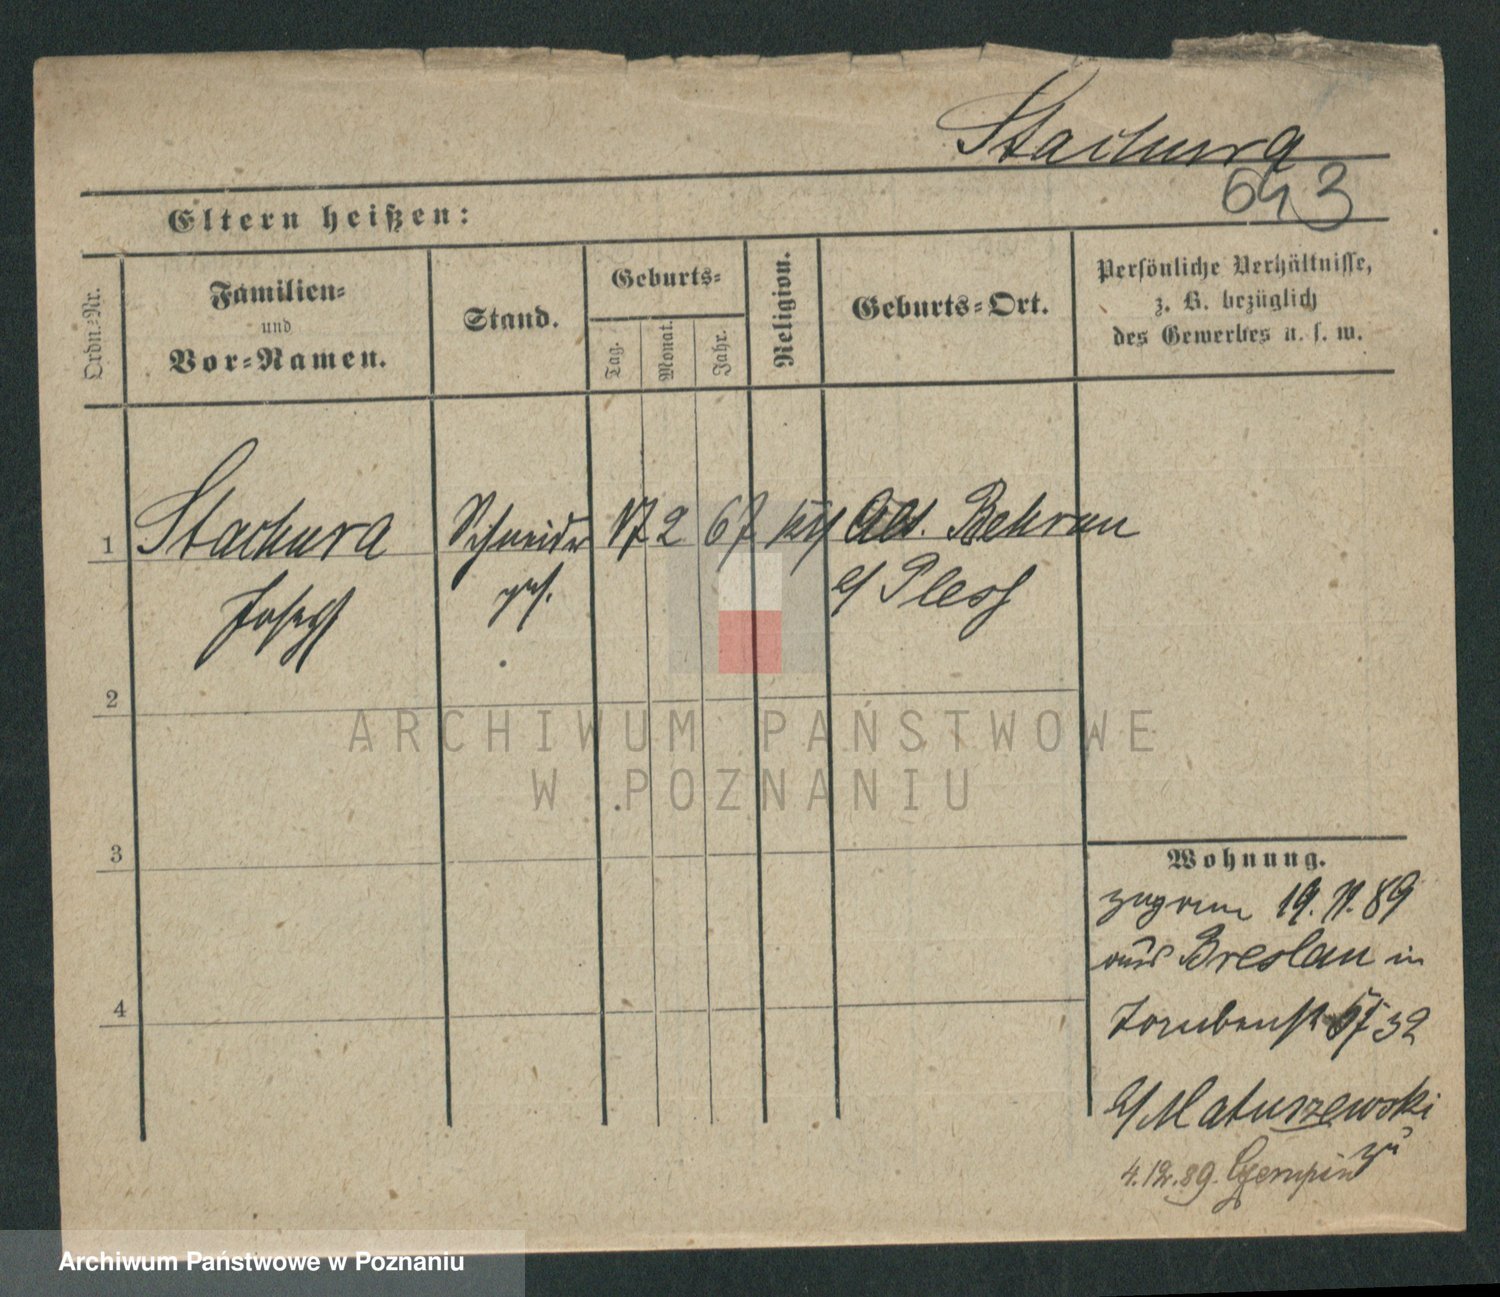 Stachura
643
Eltern heißen:
Ordn.-Nr.
Familien-
und
Vor-Namen.
Stand.
Geburts-
Tag.
Monat.
Jahr.
Religion.
Geburts-Ort.
Persönliche Verhältnisse,
z. B. bezüglich
des Gewerbes u. s. w.
1
Stachura
Josef
Schneider
ges.
17 2 67 kth
Alt. Behrun
Pless
2
3
4
Wohnung.
zugezogen 19. 11. 89
aus Breslau in
Taubenstr 32
Matuszewski
4.12.89. zu
ARCHIWUM PAŃSTWOWE
W POZNANIU
Archiwum Państwowe w Poznaniu